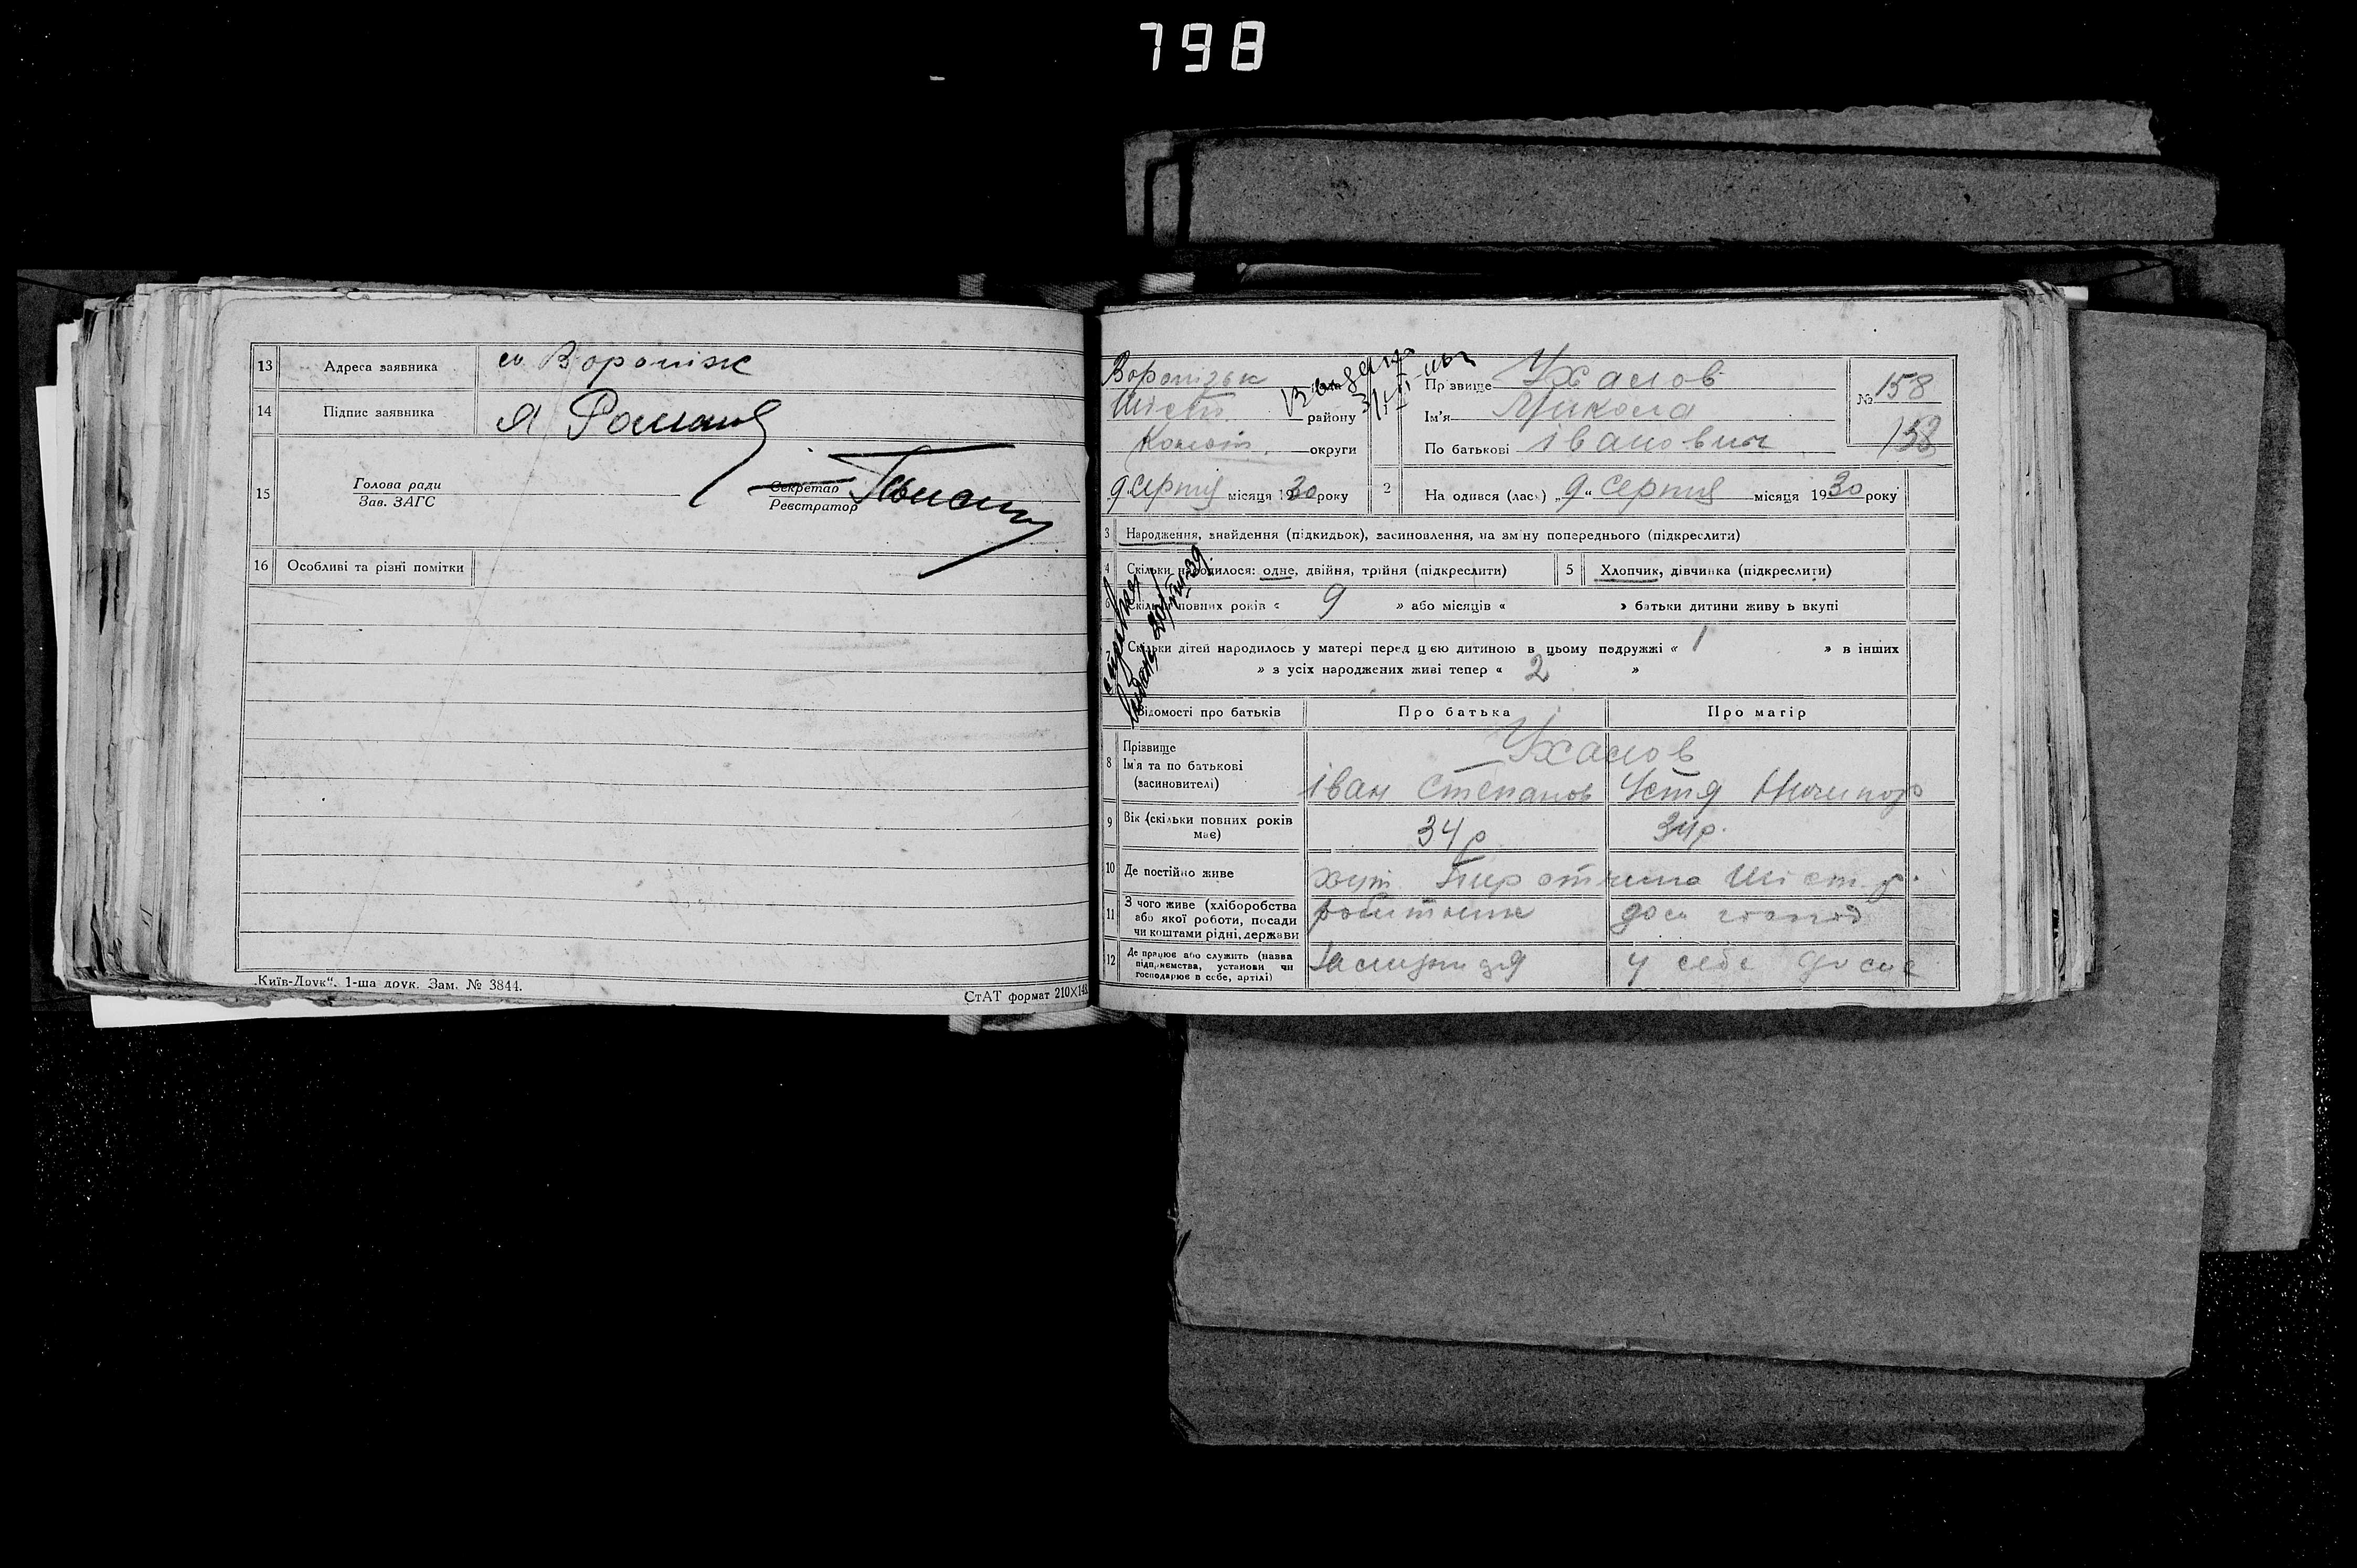 798
13 Адреса заявника с. Вороніж
14 Підпис заявника Я Роман
15 Голова ради
Зав. ЗАГС
Секретар
Реєстратор
16 Особливі та різні помітки
„Київ-Друк“. 1-ша друк. Зам. № 3844.
СтАТ формат 210×148
Воронізьк
Шістк району
Конот. округи
9 серпня місяця 1930 року
Прізвище Ухалов
Ім'я Микола
По батькові Іванович
№ 158
158
2 На одився (лась) „9“ серпня місяця 1930 року
3 Народження, знайдення (підкидьок), засиновлення, на зміну попереднього (підкреслити)
4 Скільки народилося: одне, двійня, трійня (підкреслити)
5 Хлопчик, дівчинка (підкреслити)
6 Скільки повних років « 9 » або місяців « » батьки дитини живу ь вкупі
7 Скільки дітей народилось у матері перед цією дитиною в цьому подружжі « 1 » в інших
» з усіх народжених живі тепер « 2 »
Відомості про батьків Про батька Про матір
8 Прізвище
Ім'я та по батькові
(засиновителі)
Ухалов
Іван Степанов Устя Ничипор
9 Вік (скільки повних років має) 34 р 34 р.
10 Де постійно живе хут.
11 З чого живе (хліборобства
або якої роботи, посади
чи коштами рідні, держави
робітник дом господ
12 Де працює або служить (назва
підприємства, установи чи
господарює в себе, артілі)
у себе дома